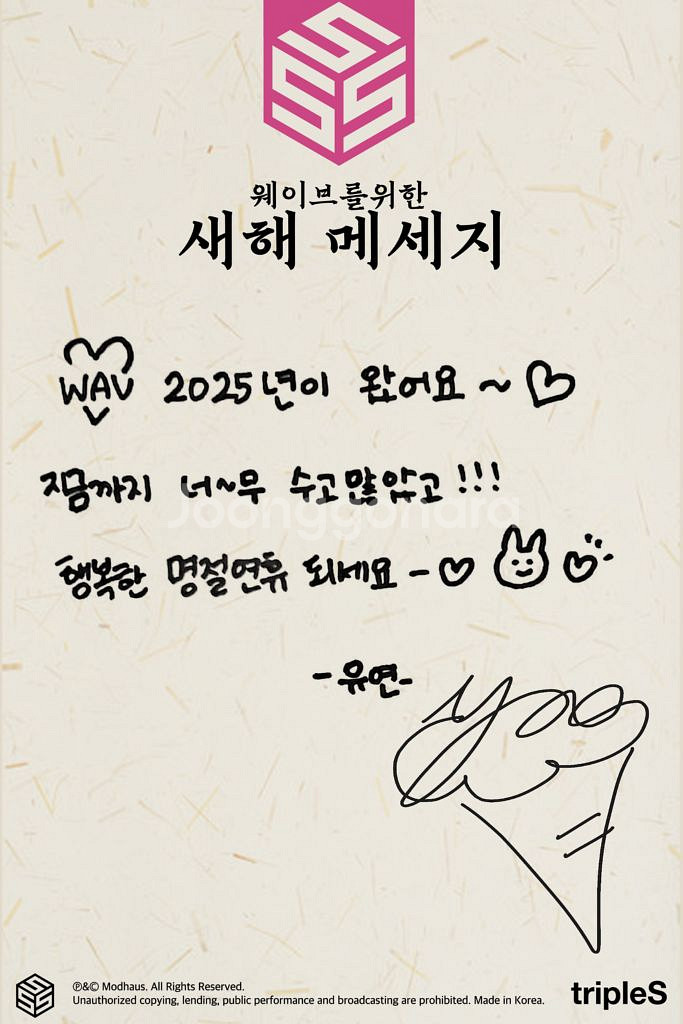 웨이브를위한
새해 메세지
WAV 2025년이 왔어요 ~ ♡
지금까지 너~무 수고 많았고 !!!
행복한 명절연휴 되세요 - ♡ ♡
- 유연 -
Joonggonara
℗&© Modhaus. All Rights Reserved.
Unauthorized copying, lending, public performance and broadcasting are prohibited. Made in Korea.
tripleS